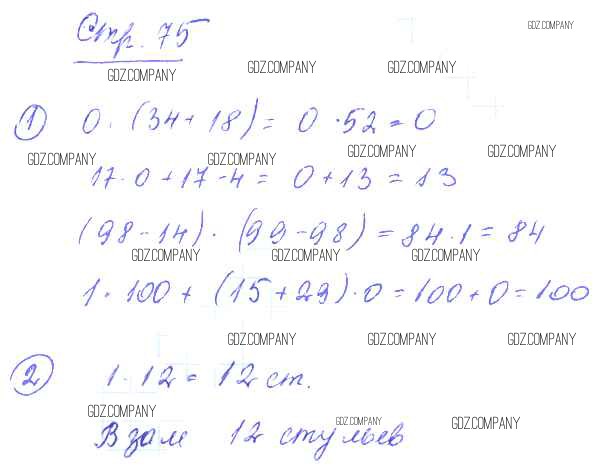 Стр. 75
GDZ.COMPANY
GDZ.COMPANY GDZ.COMPANY GDZ.COMPANY
1 0 · (34 + 18) = 0 · 52 = 0
GDZ.COMPANY GDZ.COMPANY GDZ.COMPANY GDZ.COMPANY
17 · 0 + 17 - 4 = 0 + 13 = 13
(98 - 14) · (99 - 98) = 84 · 1 = 84
GDZ.COMPANY GDZ.COMPANY GDZ.COMPANY
1 · 100 + (15 + 29) · 0 = 100 + 0 = 100
GDZ.COMPANY GDZ.COMPANY GDZ.COMPANY
2 1 · 12 = 12 ст.
GDZ.COMPANY GDZ.COMPANY GDZ.COMPANY
В зале 12 стульев